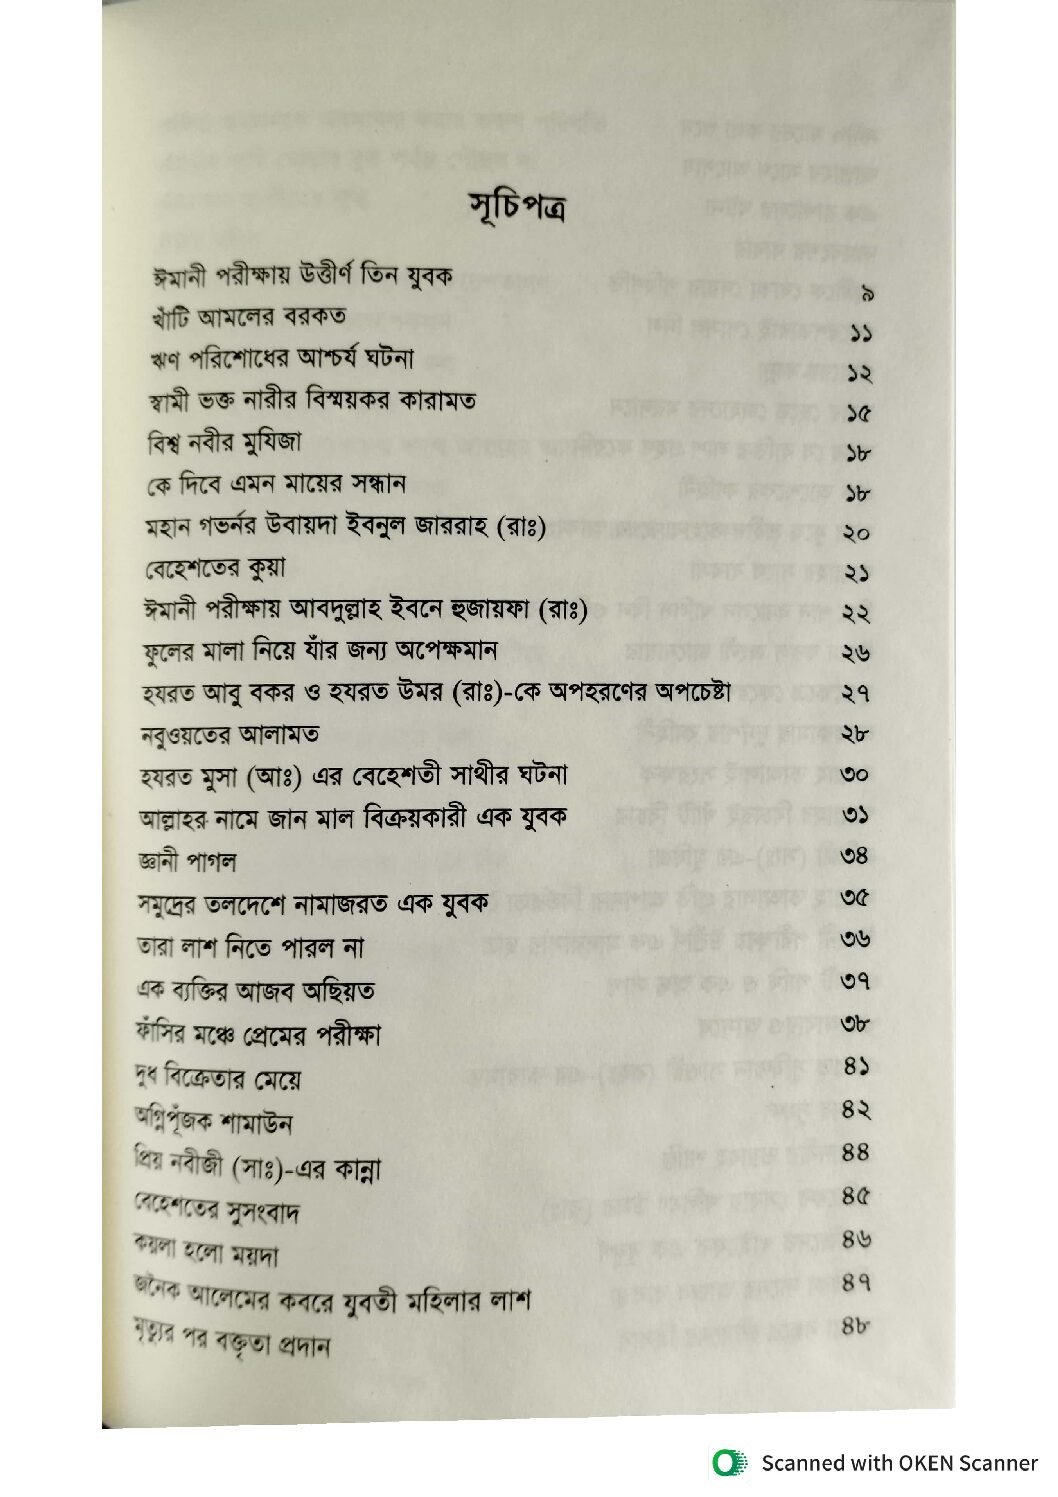 সূচিপত্র
ঈমানী পরীক্ষায় উত্তীর্ণ তিন যুবক ৯
খাঁটি আমলের বরকত ১১
ঋণ পরিশোধের আশ্চর্য ঘটনা ১২
স্বামী ভক্ত নারীর বিস্ময়কর কারামত ১৫
বিশ্ব নবীর মুযিজা ১৮
কে দিবে এমন মায়ের সন্ধান ১৮
মহান গভর্নর উবায়দা ইবনুল জাররাহ (রাঃ) ২০
বেহেশতের কুয়া ২১
ঈমানী পরীক্ষায় আবদুল্লাহ ইবনে হুজায়ফা (রাঃ) ২২
ফুলের মালা নিয়ে যাঁর জন্য অপেক্ষমান ২৬
হযরত আবু বকর ও হযরত উমর (রাঃ)-কে অপহরণের অপচেষ্টা ২৭
নবুওয়তের আলামত ২৮
হযরত মুসা (আঃ) এর বেহেশতী সাথীর ঘটনা ৩০
আল্লাহর নামে জান মাল বিক্রয়কারী এক যুবক ৩১
জ্ঞানী পাগল ৩৪
সমুদ্রের তলদেশে নামাজরত এক যুবক ৩৫
তারা লাশ নিতে পারল না ৩৬
এক ব্যক্তির আজব অছিয়ত ৩৭
ফাঁসির মঞ্চে প্রেমের পরীক্ষা ৩৮
দুধ বিক্রেতার মেয়ে ৪১
অগ্নিপূঁজক শামাউন ৪২
প্রিয় নবীজী (সাঃ)-এর কান্না ৪৪
বেহেশতের সুসংবাদ ৪৫
কয়লা হলো ময়দা ৪৬
জনৈক আলেমের কবরে যুবতী মহিলার লাশ ৪৭
মৃত্যুর পর বক্তৃতা প্রদান ৪৮
Scanned with OKEN Scanner